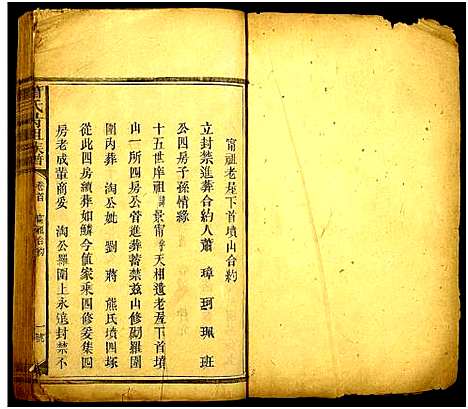 甯祖老屋下首墳山合約
立封禁進葬合約人蕭 璋 珂 珮 班
公四房子孫情緣
十五世庠祖諱景甯字天相遺老屋下首墳
山一所四房公管進葬蓄禁茲山修砌羅圍
圍內葬 淘公妣 劉 蔣 熊氏墳四塚
從此四房續葬如鱗今值家乘四修爰集四
房老成葷商爰 淘公羅圍上永遠封禁不
蕭氏 族譜
卷首
一號